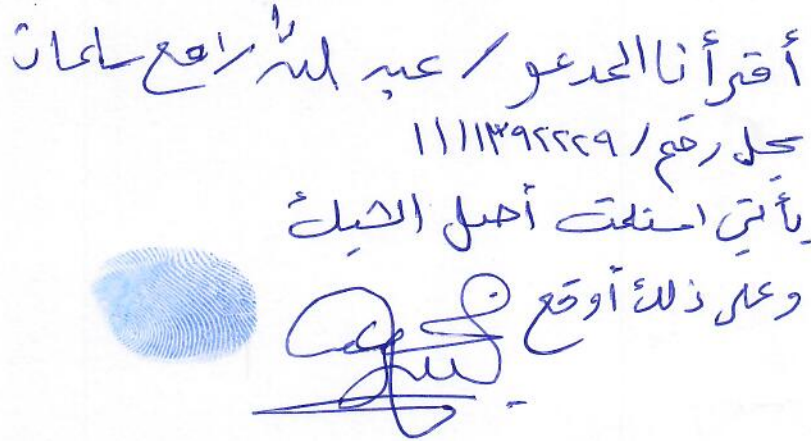 أقر أنا المدعو / عبد الله رافع سلمان
سجل رقم / ١١١١٣٩٢٢٢٩
بأني استلمت أصل الشيك
وعلى ذلك أوقع